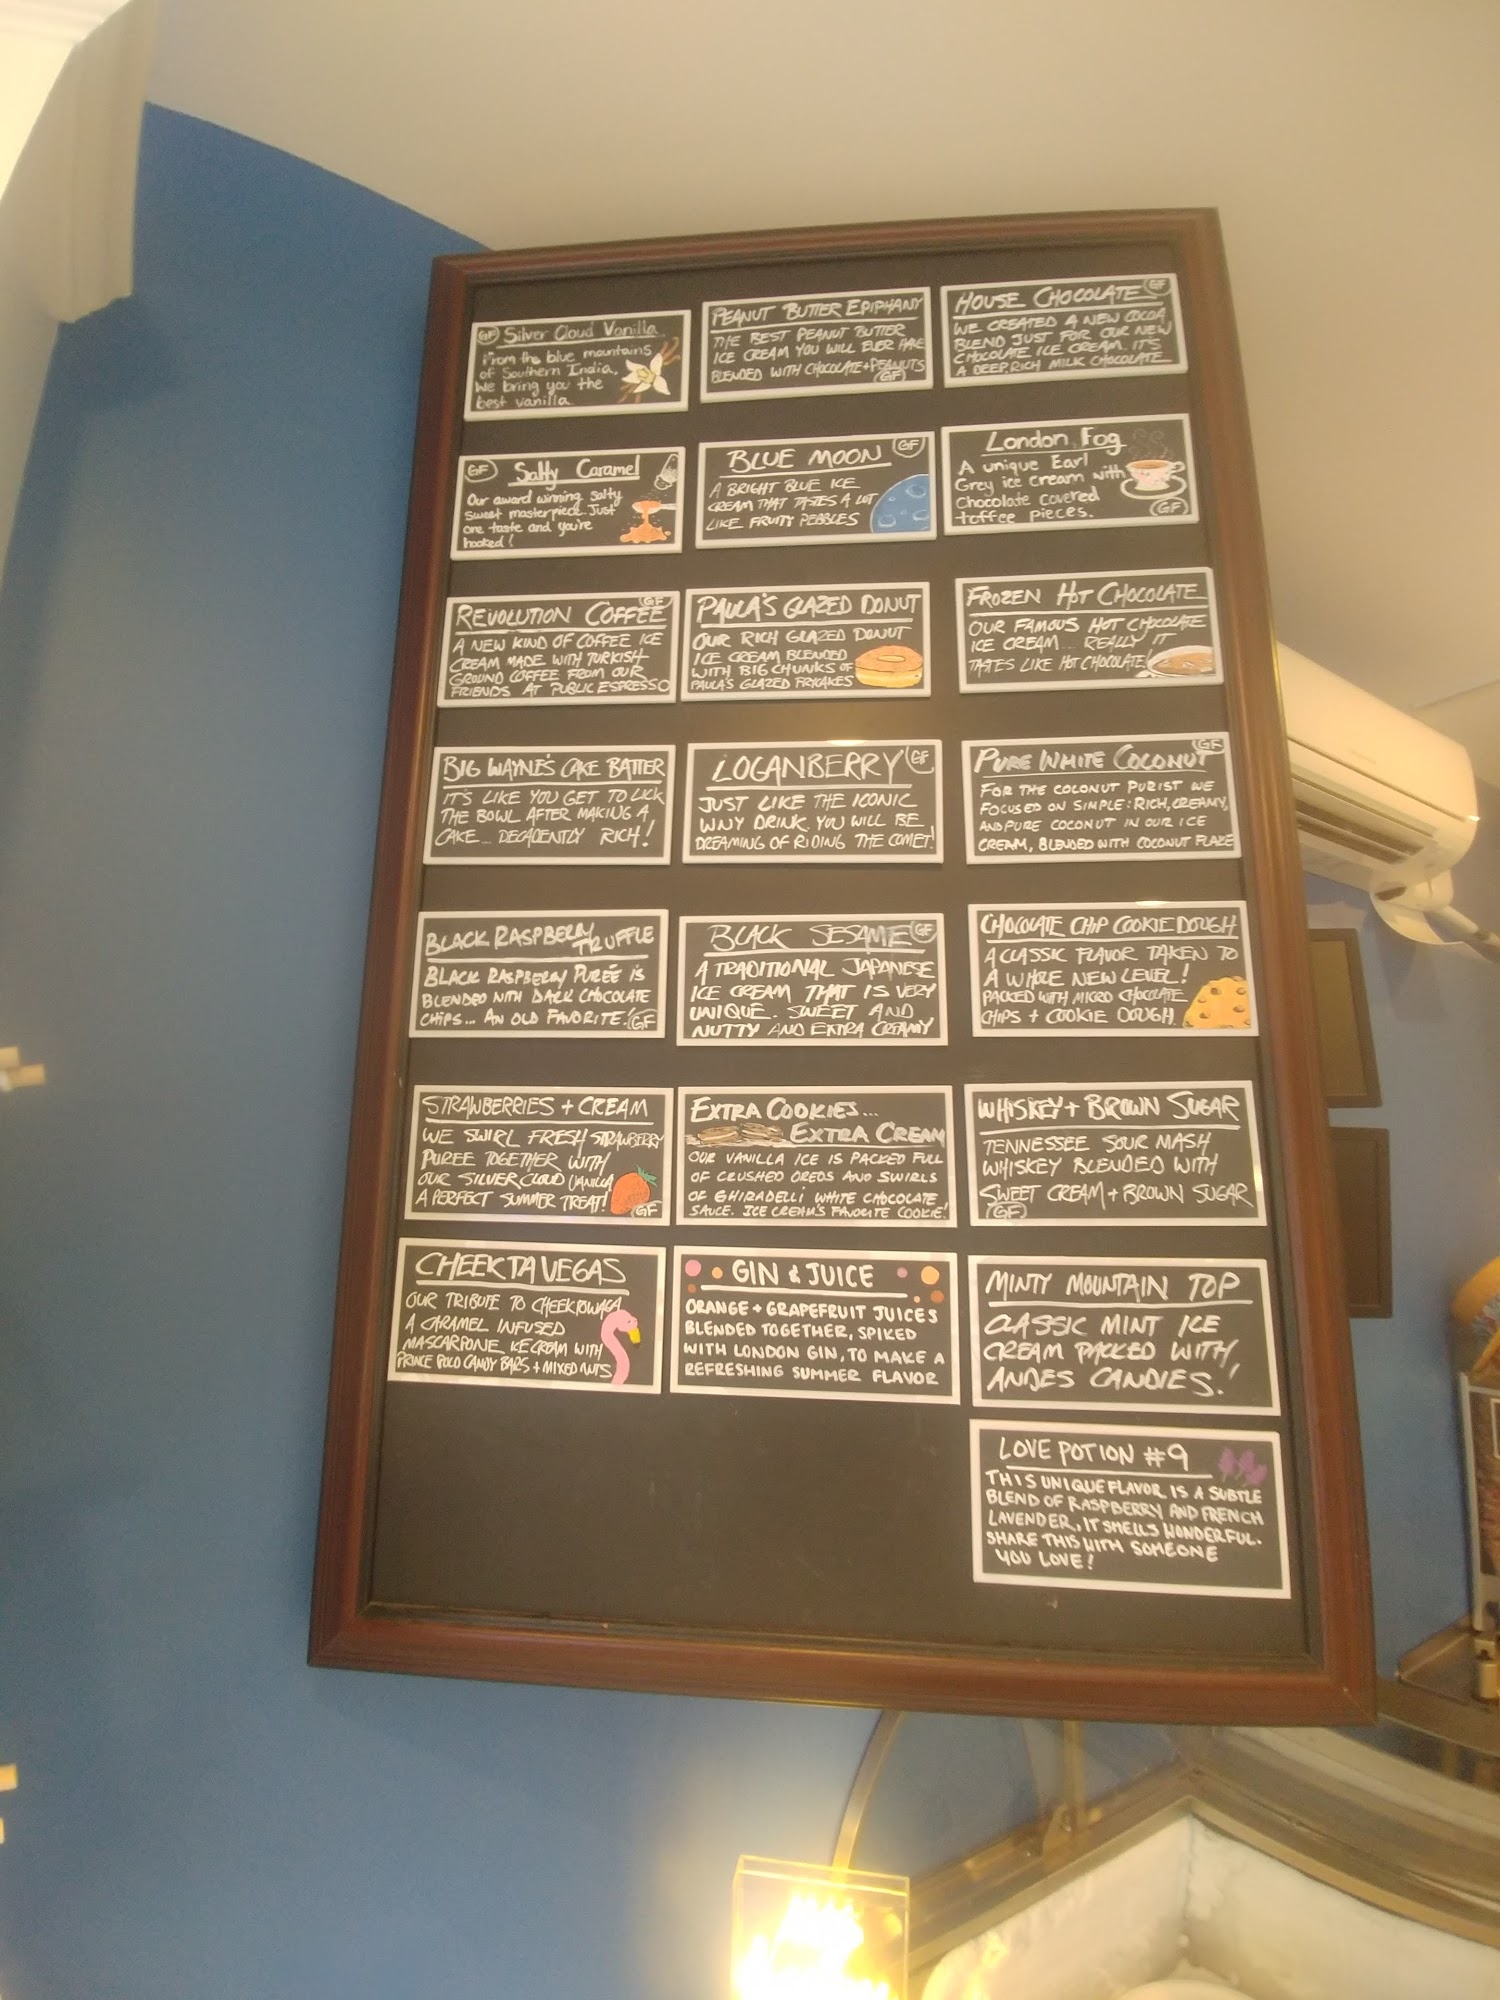 GF Silver Cloud Vanilla
From the blue mountains
of Southern India,
We bring you the
best vanilla.
PEANUT BUTTER EPIPHANY
THE BEST PEANUT BUTTER
ICE CREAM YOU WILL EVER HAVE
BLENDED WITH CHOCOLATE + PEANUTS
GF
HOUSE CHOCOLATE GF
WE CREATED A NEW COCOA
BLEND JUST FOR OUR NEW
CHOCOLATE ICE CREAM. IT'S
A DEEP, RICH MILK CHOCOLATE
GF Salty Caramel
Our award winning salty
sweet masterpiece. Just
one taste and you're
hooked!
BLUE MOON GF
A BRIGHT BLUE ICE
CREAM THAT TASTES A LOT
LIKE FRUITY PEBBLES
London Fog
A unique Earl
Grey ice cream with
Chocolate covered
toffee pieces.
GF
REVOLUTION COFFEE GF
A NEW KIND OF COFFEE ICE
CREAM MADE WITH TURKISH
GROUND COFFEE FROM OUR
FRIENDS AT PUBLIC ESPRESSO
PAULA'S GLAZED DONUT
OUR RICH GLAZED DONUT
ICE CREAM BLENDED
WITH BIG CHUNKS OF
PAULA'S GLAZED FRYCAKES
FROZEN HOT CHOCOLATE
OUR FAMOUS HOT CHOCOLATE
ICE CREAM... REALLY IT
TASTES LIKE HOT CHOCOLATE!
BIG WAYNE'S CAKE BATTER
IT'S LIKE YOU GET TO LICK
THE BOWL AFTER MAKING A
CAKE... DECADENTLY RICH!
LOGANBERRY GF
JUST LIKE THE ICONIC
WNY DRINK. YOU WILL BE
DREAMING OF RIDING THE COMET!
PURE WHITE COCONUT GF
FOR THE COCONUT PURIST WE
FOCUSED ON SIMPLE: RICH, CREAMY,
AND PURE COCONUT IN OUR ICE
CREAM, BLENDED WITH COCONUT FLAKE
BLACK RASPBERRY TRUFFLE
BLACK RASPBERRY PURÉE IS
BLENDED WITH DARK CHOCOLATE
CHIPS... AN OLD FAVORITE! GF
BLACK SESAME GF
A TRADITIONAL JAPANESE
ICE CREAM THAT IS VERY
UNIQUE. SWEET AND
NUTTY AND EXTRA CREAMY
CHOCOLATE CHIP COOKIE DOUGH
A CLASSIC FLAVOR TAKEN TO
A WHOLE NEW LEVEL!
PACKED WITH MICRO CHOCOLATE
CHIPS + COOKIE DOUGH.
STRAWBERRIES + CREAM
WE SWIRL FRESH STRAWBERRY
PUREE TOGETHER WITH
OUR SILVER CLOUD VANILLA
A PERFECT SUMMER TREAT! GF
EXTRA COOKIES...
EXTRA CREAM
OUR VANILLA ICE IS PACKED FULL
OF CRUSHED OREOS AND SWIRLS
OF GHIRADELLI WHITE CHOCOLATE
SAUCE. ICE CREAM'S FAVORITE COOKIE!
WHISKEY + BROWN SUGAR
TENNESSEE SOUR MASH
WHISKEY BLENDED WITH
SWEET CREAM + BROWN SUGAR
GF
CHEEKTAVEGAS
OUR TRIBUTE TO CHEEKTOWAGA
A CARAMEL INFUSED
MASCARPONE ICE CREAM WITH
PRINCE POLO CANDY BARS + MIXED NUTS
GIN & JUICE
ORANGE + GRAPEFRUIT JUICES
BLENDED TOGETHER, SPIKED
WITH LONDON GIN, TO MAKE A
REFRESHING SUMMER FLAVOR
MINTY MOUNTAIN TOP
CLASSIC MINT ICE
CREAM PACKED WITH
ANDES CANDIES!
LOVE POTION #9
THIS UNIQUE FLAVOR IS A SUBTLE
BLEND OF RASPBERRY AND FRENCH
LAVENDER, IT SMELLS WONDERFUL.
SHARE THIS WITH SOMEONE
YOU LOVE!